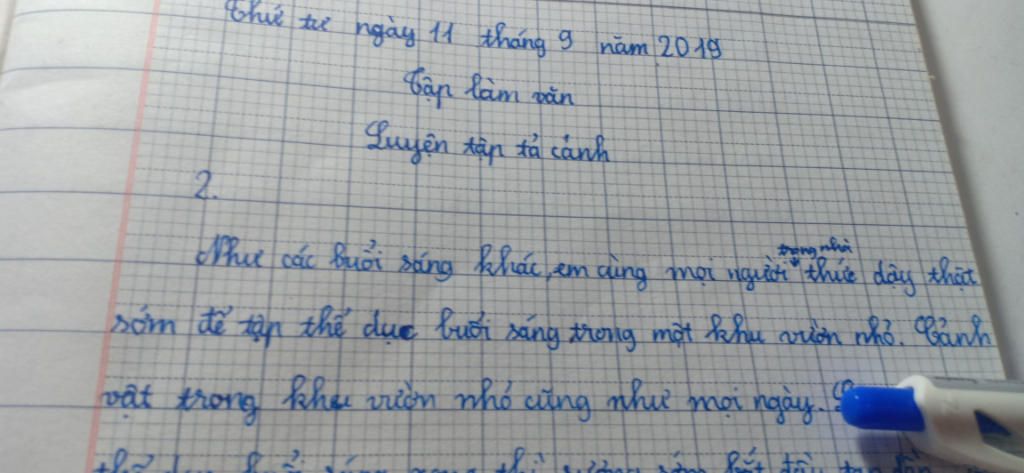 Thứ tư ngày 11 tháng 9 năm 2019
Tập làm văn
Luyện tập tả cảnh
2.
Như các buổi sáng khác, em cùng mọi người trong nhà thức dậy thật
sớm để tập thể dục buổi sáng trong một khu vườn nhỏ. Cảnh
vật trong khu vườn nhỏ cũng như mọi ngày.